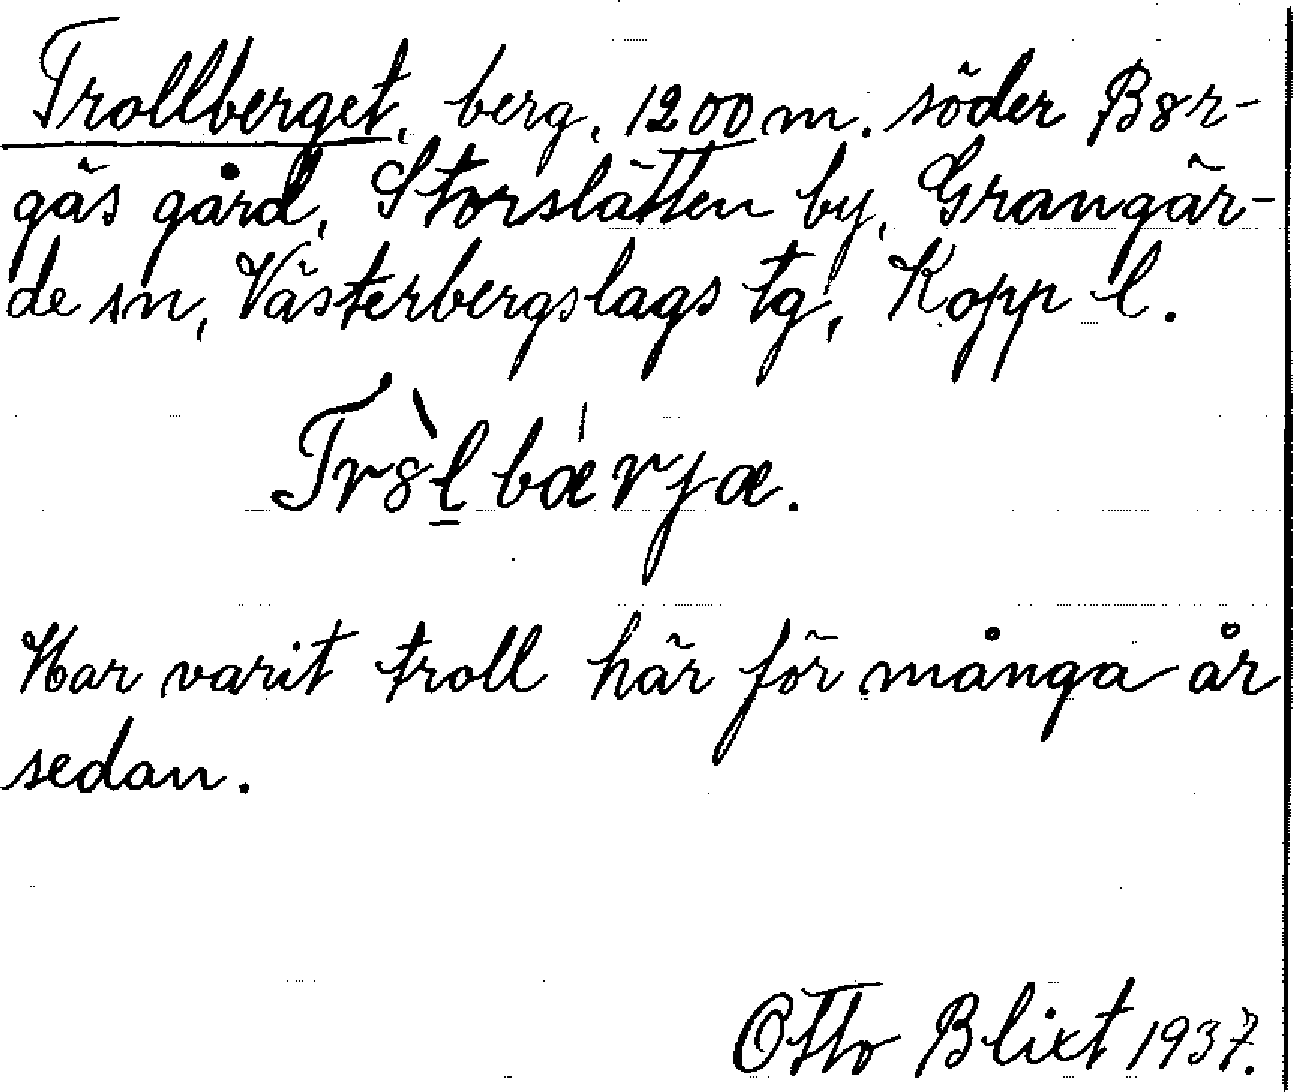 Trollberget, berg, 1200 m. söder B8r-
gäs gård, Storslätten by, Grangär-
de sn, Västerbergslags tg, Kopp l.
Tr8̀l̲ bǽrjæ.
Har varit troll här för många år
sedan.
Otto Blixt 1937.